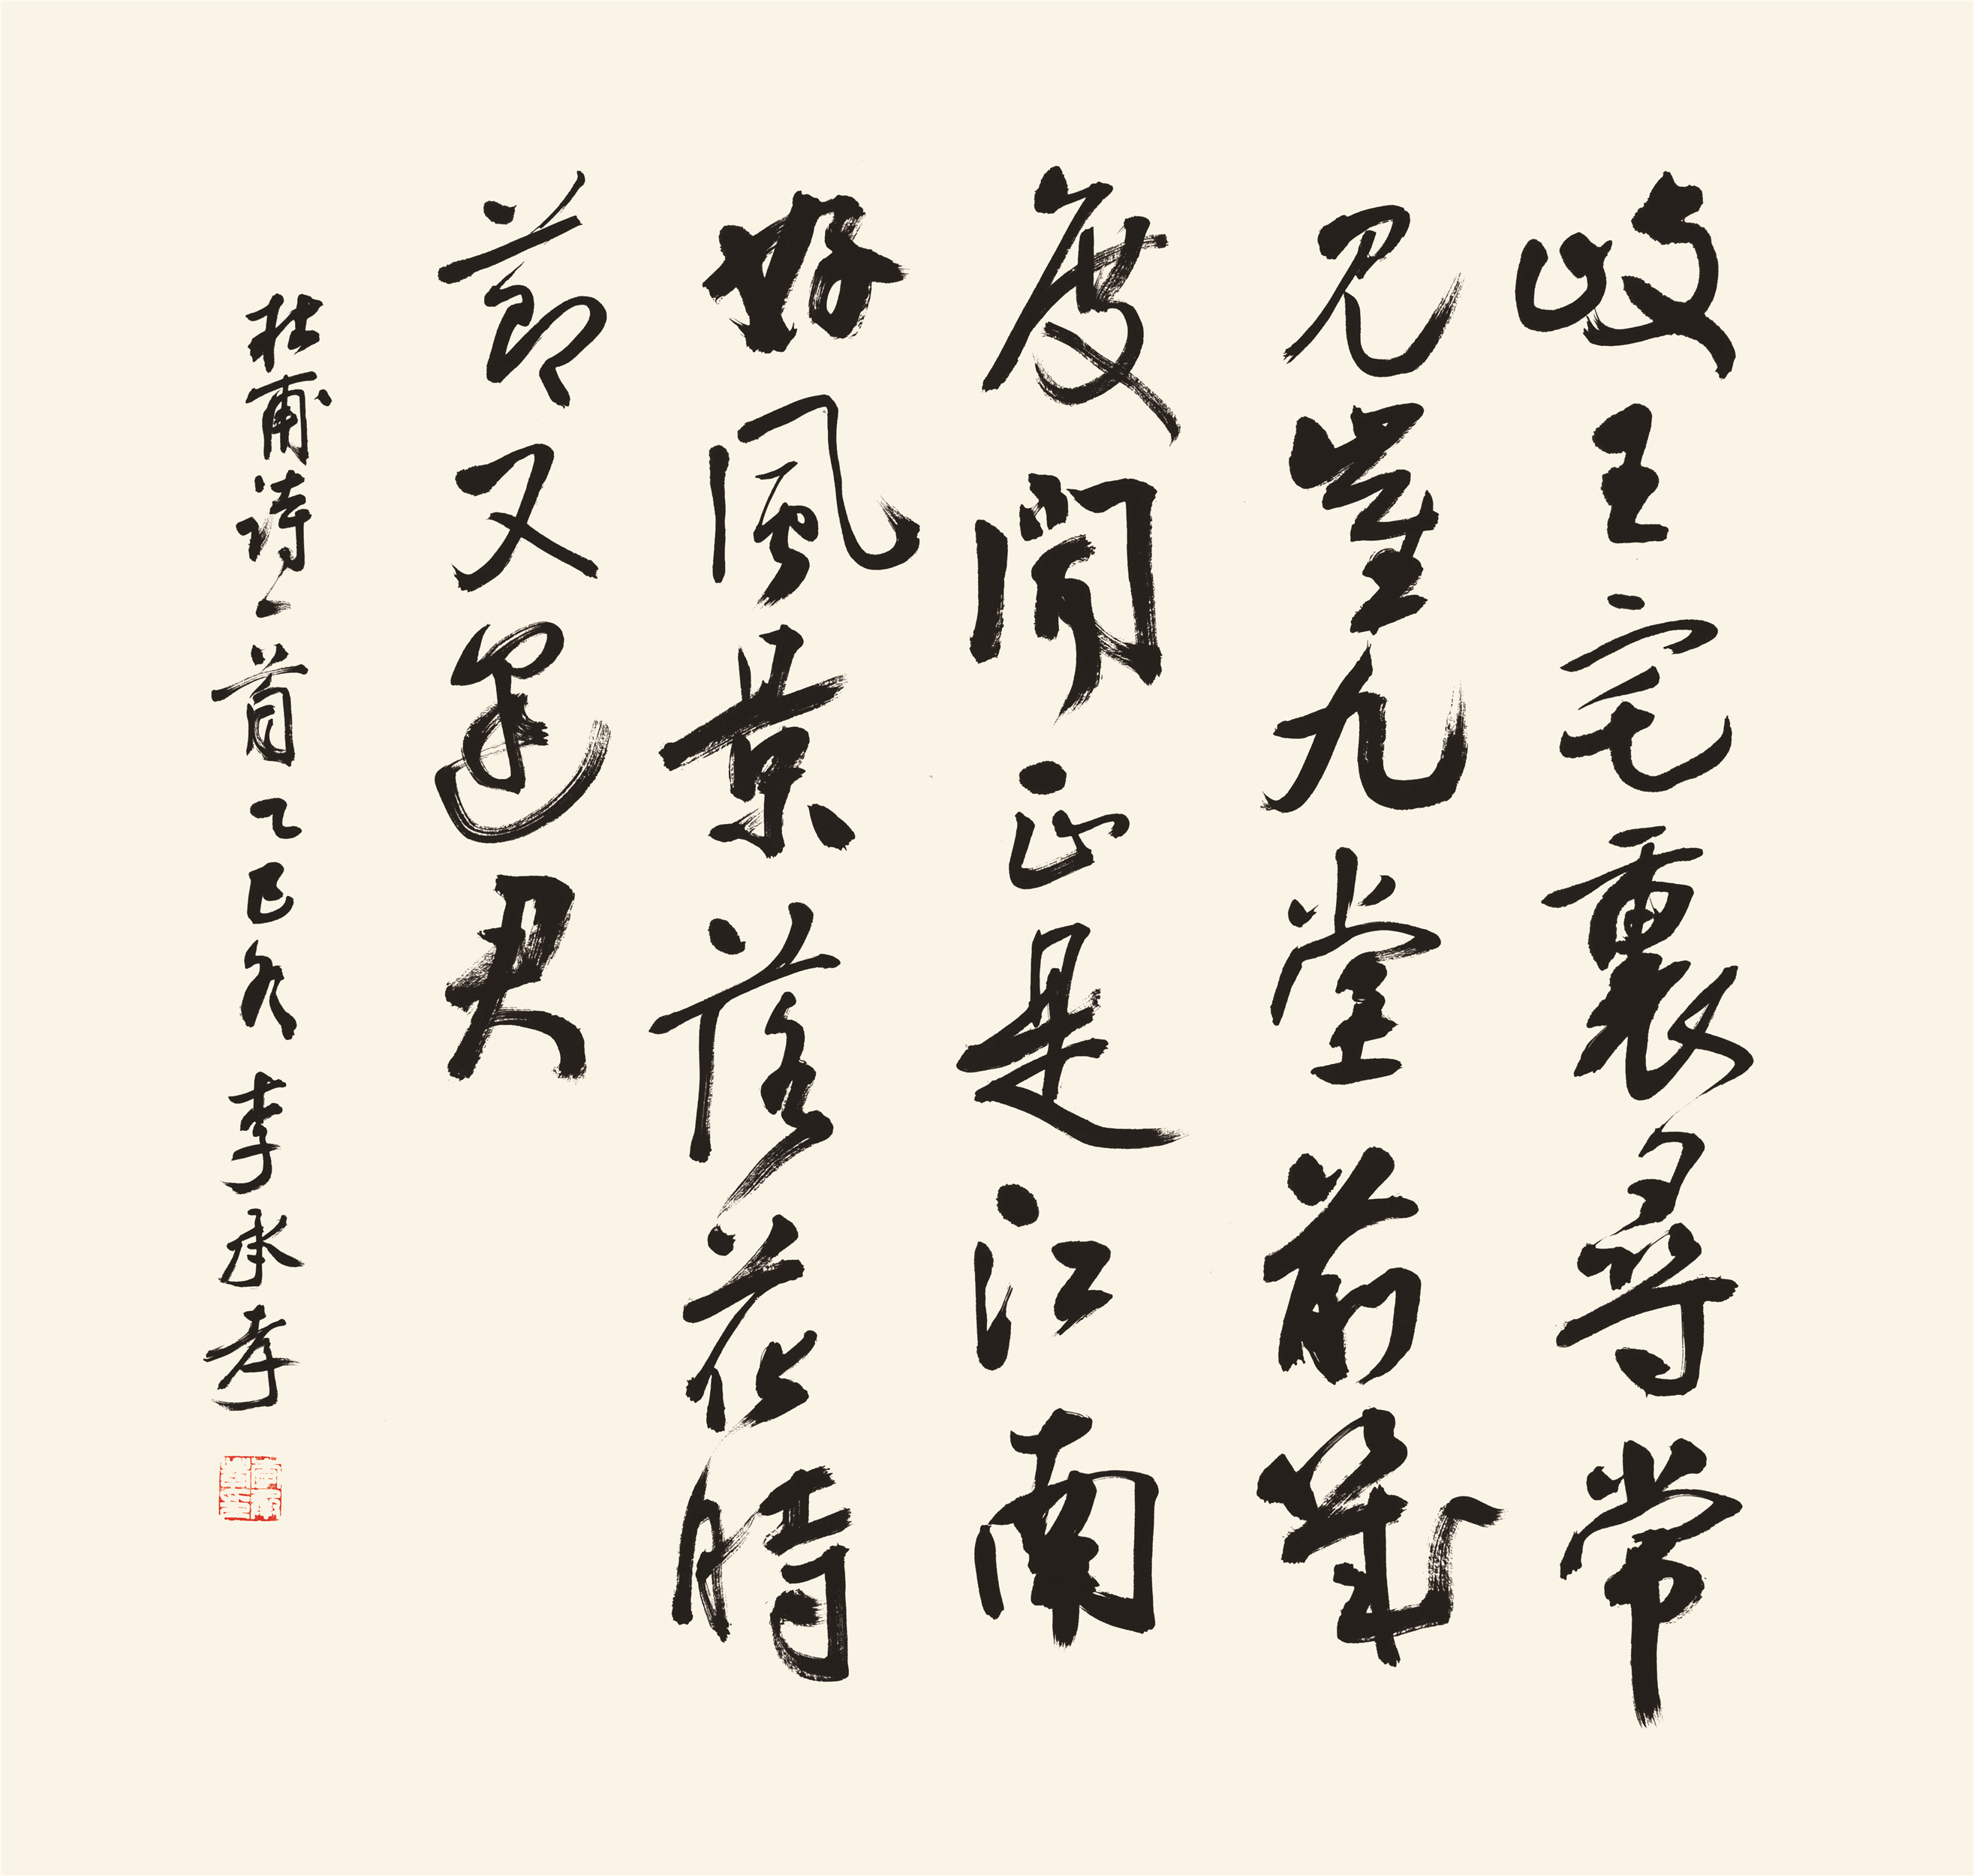 岐王宅裏尋常
見崔九堂前幾
度聞正是江南
好風景落花時
節又逢君
杜甫詩一首乙巳冬李承孝